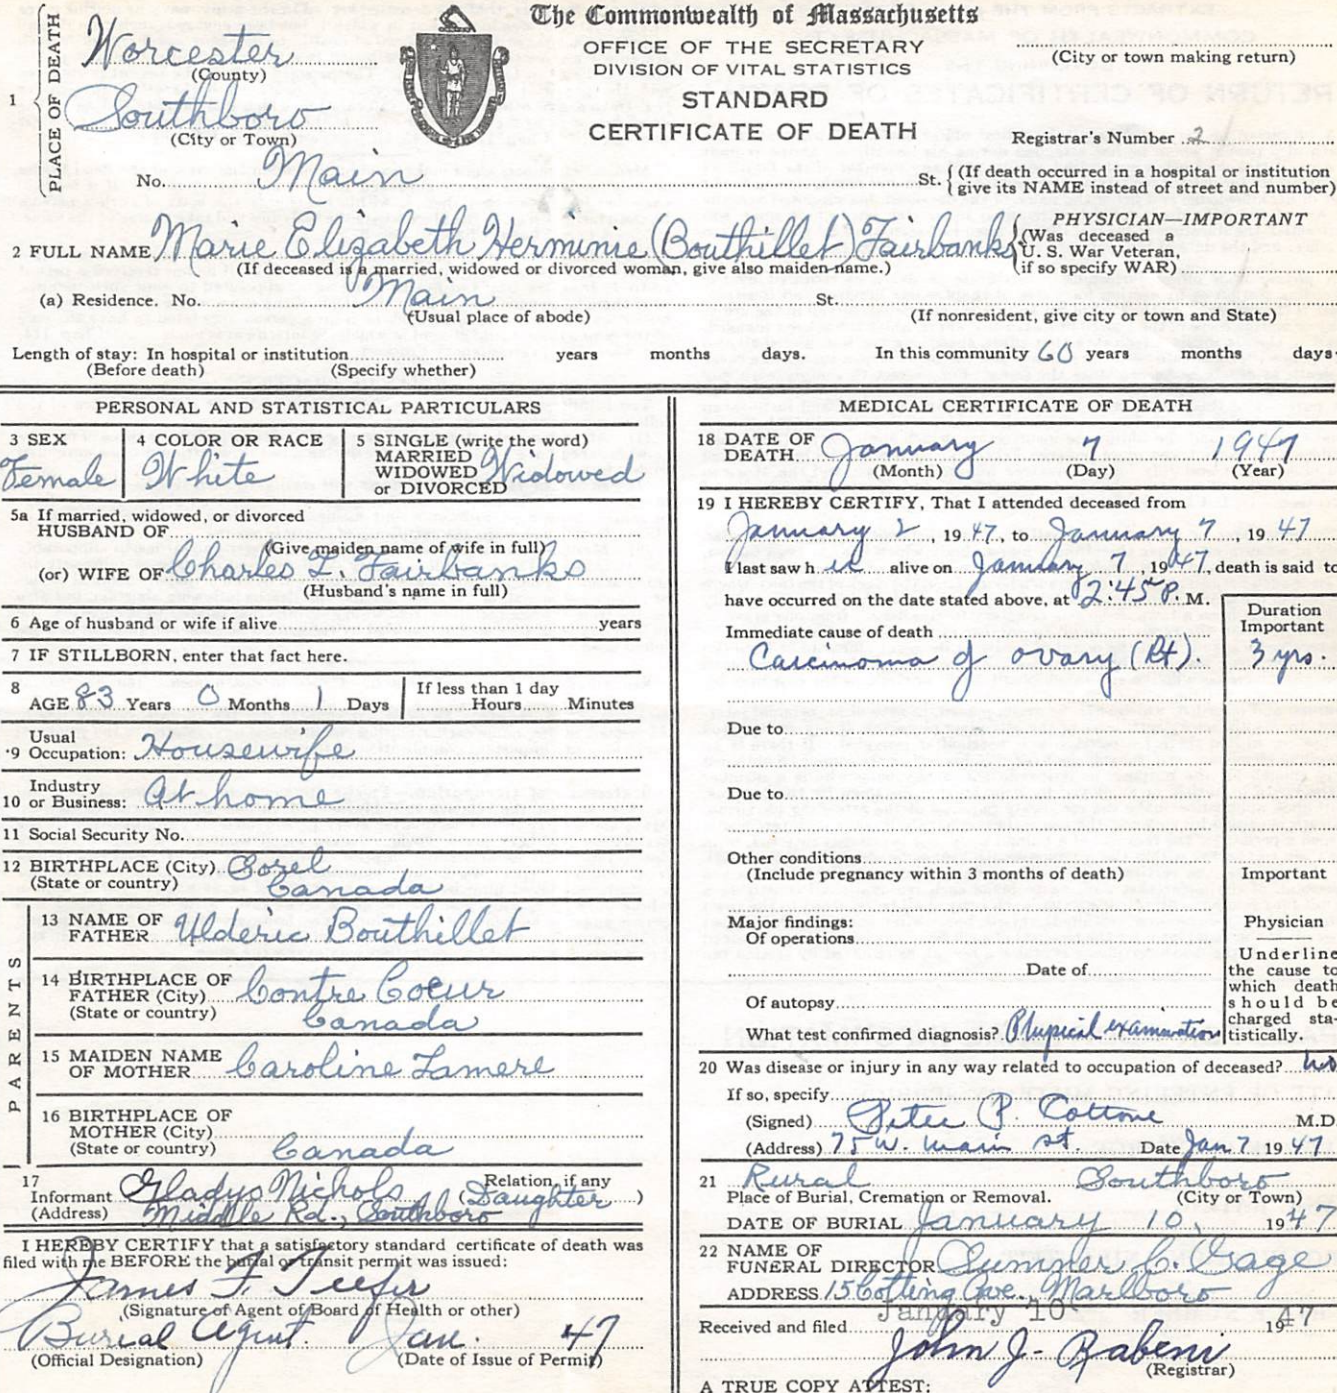 The Commonwealth of Massachusetts
OFFICE OF THE SECRETARY
DIVISION OF VITAL STATISTICS
STANDARD
CERTIFICATE OF DEATH
(City or town making return)
Registrar's Number 2
1 PLACE OF DEATH
Worcester
(County)
Southboro
(City or Town)
No. Main St. (If death occurred in a hospital or institution give its NAME instead of street and number)
2 FULL NAME Marie Elizabeth Herminie (Bouthillet) Fairbanks
(If deceased is a married, widowed or divorced woman, give also maiden name.)
PHYSICIAN—IMPORTANT
(Was deceased a
U. S. War Veteran,
if so specify WAR)
(a) Residence. No. Main St.
(Usual place of abode) (If nonresident, give city or town and State)
Length of stay: In hospital or institution years months days. In this community 60 years months days.
(Before death) (Specify whether)
PERSONAL AND STATISTICAL PARTICULARS
3 SEX
Female
4 COLOR OR RACE
White
5 SINGLE (write the word)
MARRIED
WIDOWED Widowed
or DIVORCED
5a If married, widowed, or divorced
HUSBAND OF
(Give maiden name of wife in full)
(or) WIFE OF Charles F. Fairbanks
(Husband's name in full)
6 Age of husband or wife if alive years
7 IF STILLBORN, enter that fact here.
8 AGE 83 Years 0 Months 1 Days
If less than 1 day
Hours Minutes
9 Usual Occupation: Housewife
10 Industry or Business: At home
11 Social Security No.
12 BIRTHPLACE (City) Sorel
(State or country) Canada
PARENTS
13 NAME OF FATHER Ulderic Bouthillet
14 BIRTHPLACE OF
FATHER (City) Contre Coeur
(State or country) Canada
15 MAIDEN NAME
OF MOTHER Caroline Lamere
16 BIRTHPLACE OF
MOTHER (City)
(State or country) Canada
17
Informant Gladys Nichols Relation, if any
(Address) Middle Rd., Southboro (Daughter)
I HEREBY CERTIFY that a satisfactory standard certificate of death was
filed with me BEFORE the burial or transit permit was issued:
James F.
(Signature of Agent of Board of Health or other)
Burial Agent. Jan. 47
(Official Designation) (Date of Issue of Permit)
MEDICAL CERTIFICATE OF DEATH
18 DATE OF
DEATH January 7 1947
(Month) (Day) (Year)
19 I HEREBY CERTIFY, That I attended deceased from
January 2, 1947, to January 7, 1947
I last saw h er alive on January 7, 1947, death is said to
have occurred on the date stated above, at 2:45 P. M.
Duration
Important
Immediate cause of death
Carcinoma of ovary (Rt). 3 yrs.
Due to
Due to
Other conditions
(Include pregnancy within 3 months of death)
Important
Major findings:
Of operations
Date of
Of autopsy
What test confirmed diagnosis? Physical examination
Physician
Underline
the cause to
which death
should be
charged sta-
tistically.
20 Was disease or injury in any way related to occupation of deceased? no
If so, specify
(Signed) Peter P. Cottone M.D.
(Address) 75 W. Main St. Date Jan 7 1947
21 Rural Southboro
Place of Burial, Cremation or Removal. (City or Town)
DATE OF BURIAL January 10, 1947
22 NAME OF
FUNERAL DIRECTOR Sumner C. Gage
ADDRESS 15 Cotting Ave. Marlboro
January 10
Received and filed 1947
John J.
(Registrar)
A TRUE COPY ATTEST: